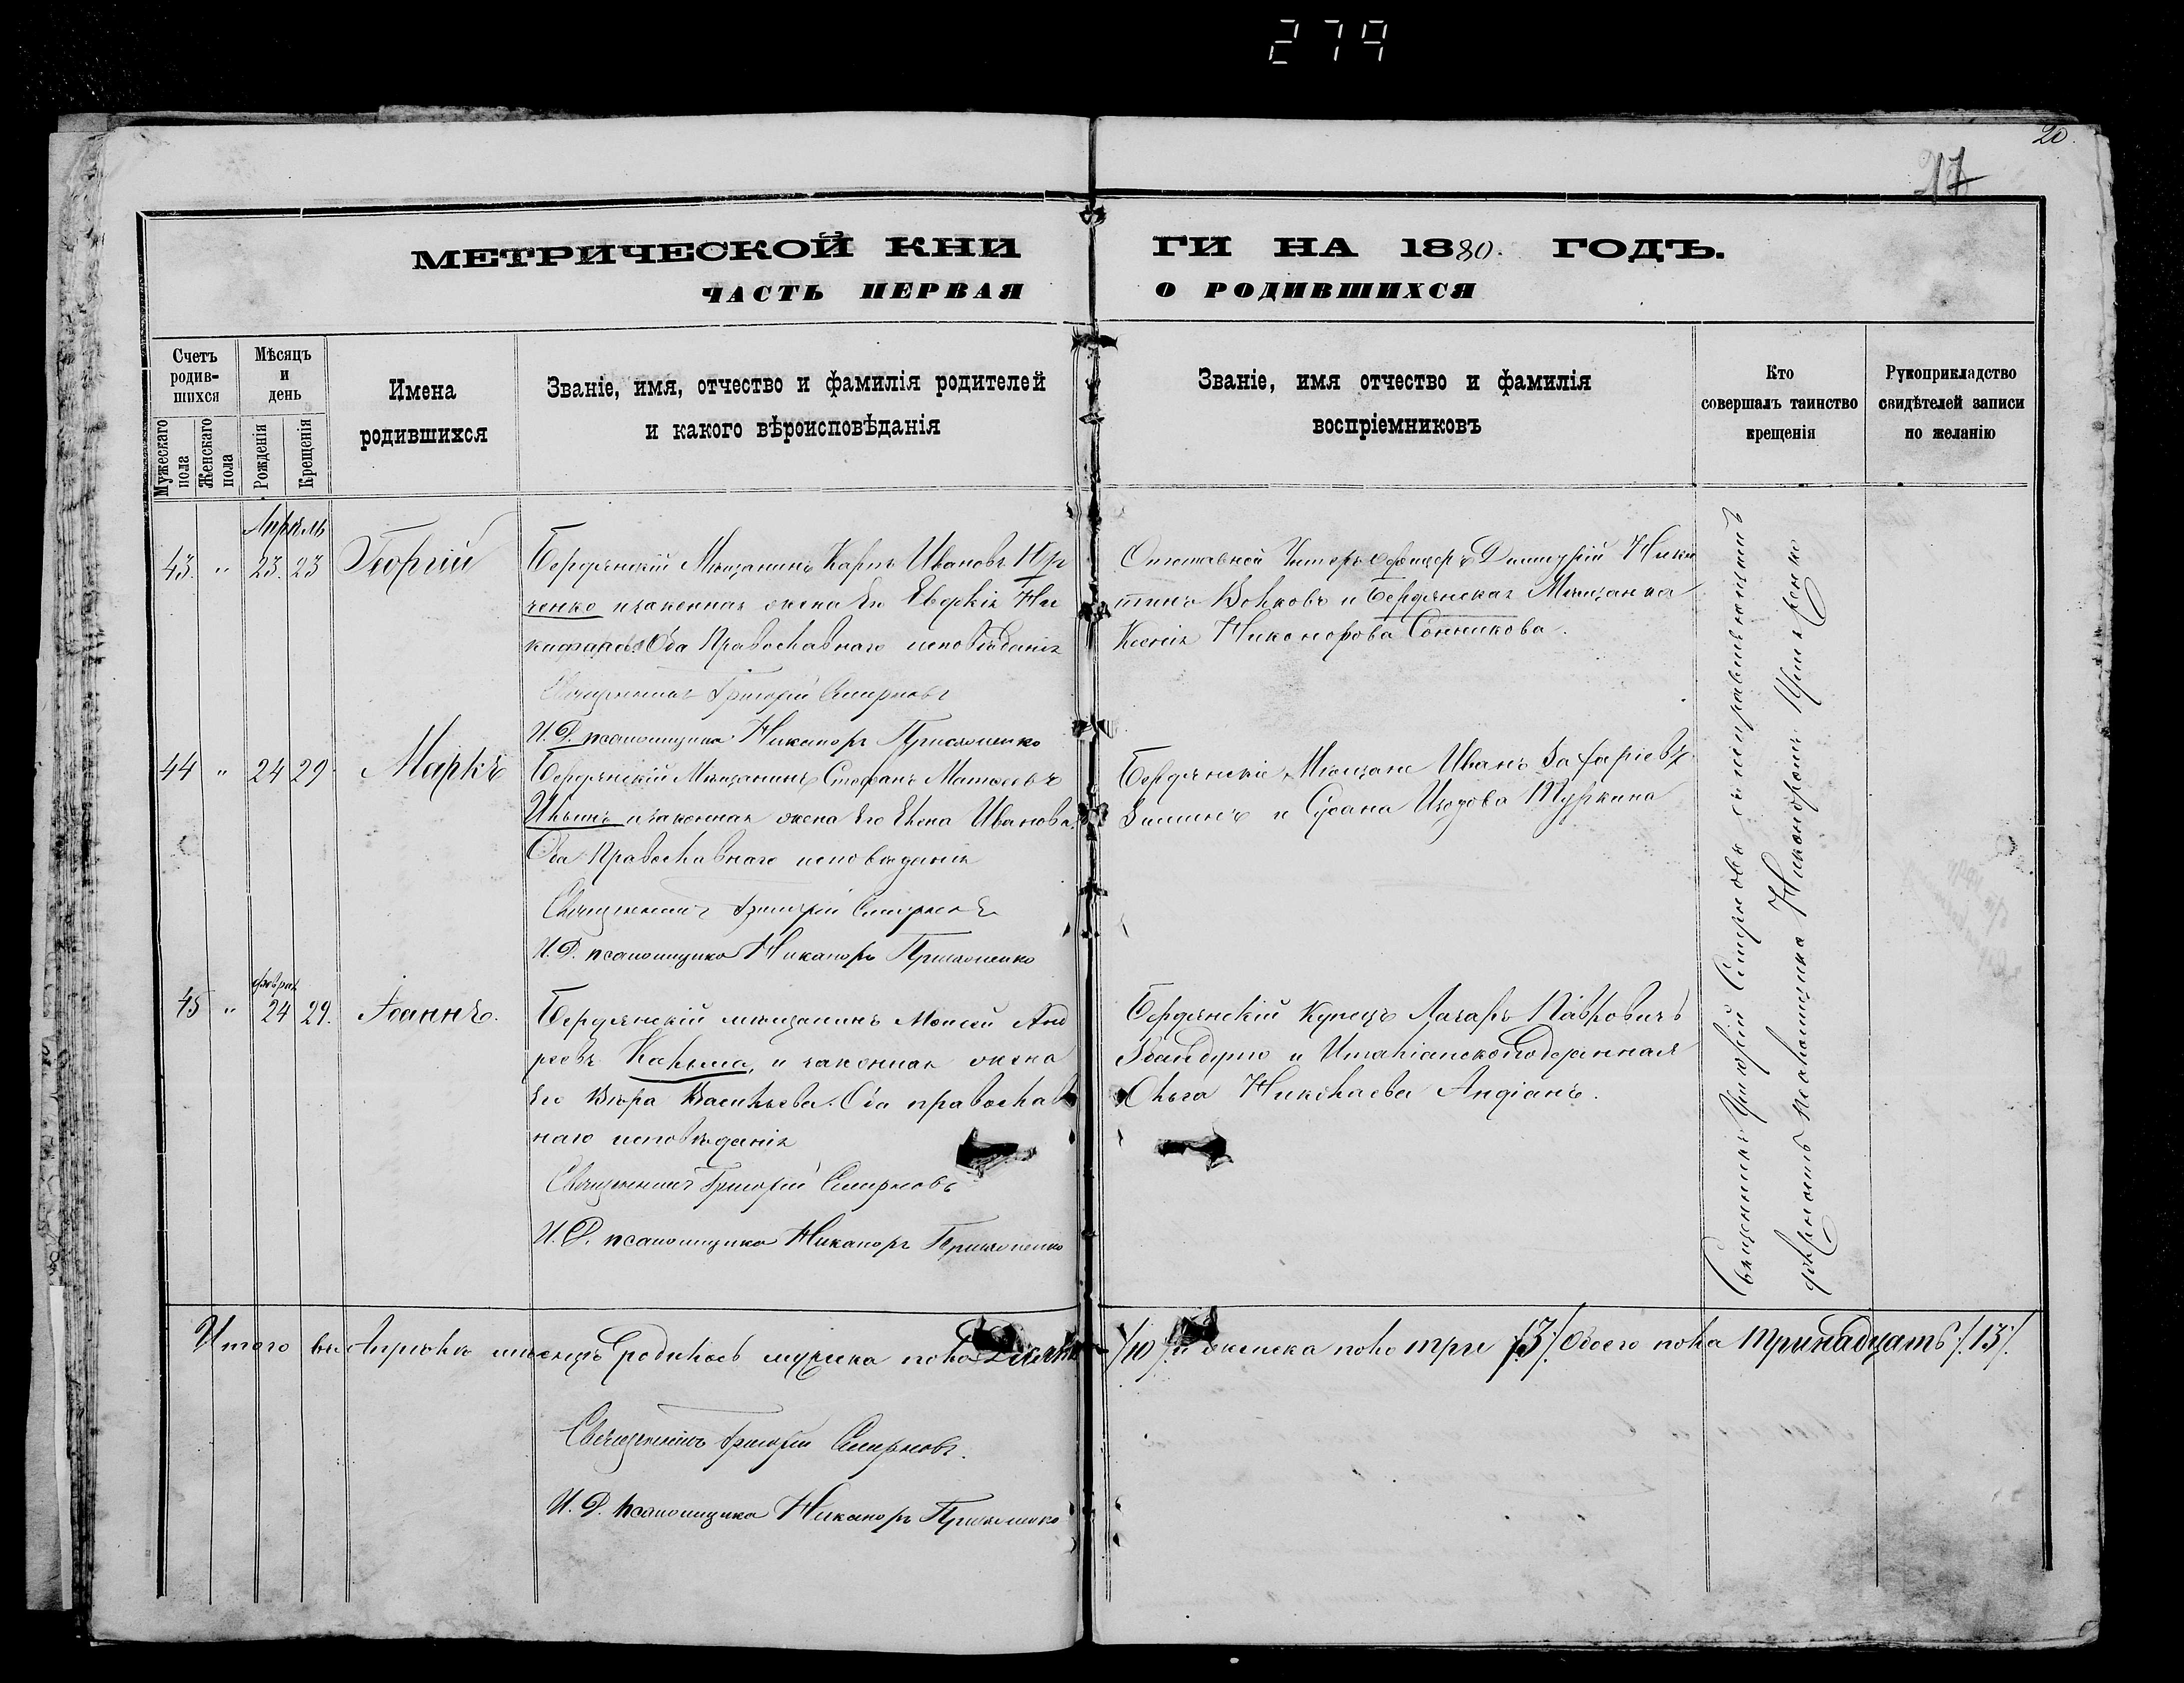 279
20.
17
МЕТРИЧЕСКОЙ КНИ ГИ НА 1880. ГОДЪ.
ЧАСТЬ ПЕРВАЯ О РОДИВШИХСЯ
Счетъ родив-шихся
Мужескаго пола
Женскаго пола
Мѣсяцъ и день
Рожденія
Крещенія
Имена родившихся
Званіе, имя, отчество и фамилія родителей
и какого вѣроисповѣданія
Званіе, имя отчество и фамилія
воспріемниковъ
Кто
совершалъ таинство
крещенія
Рукоприкладство
свидѣтелей записи
по желанію
Апрѣль
43. " 23. 23 Георгій
Бердянскій Мѣщанинъ Карпъ Ивановъ
ченко и законная жена Его Евдокія Ни
Оба Православнаго исповѣданія
Священникъ Григорій Смирновъ
И. Д. псаломщика Никаноръ
Отставной Унтеръ Офицеръ Димитрій Ники
тинъ Волковъ и Бердянская Мѣщанка
Ксенія Никонорова Сотникова.
44 " 24 29 Маркъ
Бердянскій Мѣщанинъ Стефанъ Матвеевъ
Ильинъ и законная жена Его Елена Иванова.
Оба Православнаго исповѣданія
Священникъ Григорій Смирновъ
И. Д. псаломщика Никаноръ
Бердянскіе Мѣщане Иванъ Захаріевъ
Зиминъ и Сусана Изотова Туркина
февраля
45 " 24 29. Іоаннъ.
Бердянскій мѣщанинъ Моисей Анд
реевъ Калына, и законная жена
Его Вѣра Васильева. Оба православ
наго исповѣданія
Священникъ Григорій Смирновъ
И. Д. псаломщика Никаноръ
Бердянскій купецъ Лазарь Павловичъ
и Италіанскоподданная
Ольга Николаева Андіанъ.
Священникъ Григорій Смирновъ съ исправляющимъ
должность псаломщика Никоноромъ
Итого въ Апрѣлѣ мѣсяцѣ родилось мужска пола Десять /10/ и женска пола три /3/. Обоего пола тринадцать /.13/.
Священникъ Григорій Смирновъ.
И. Д. псаломщика Никаноръ